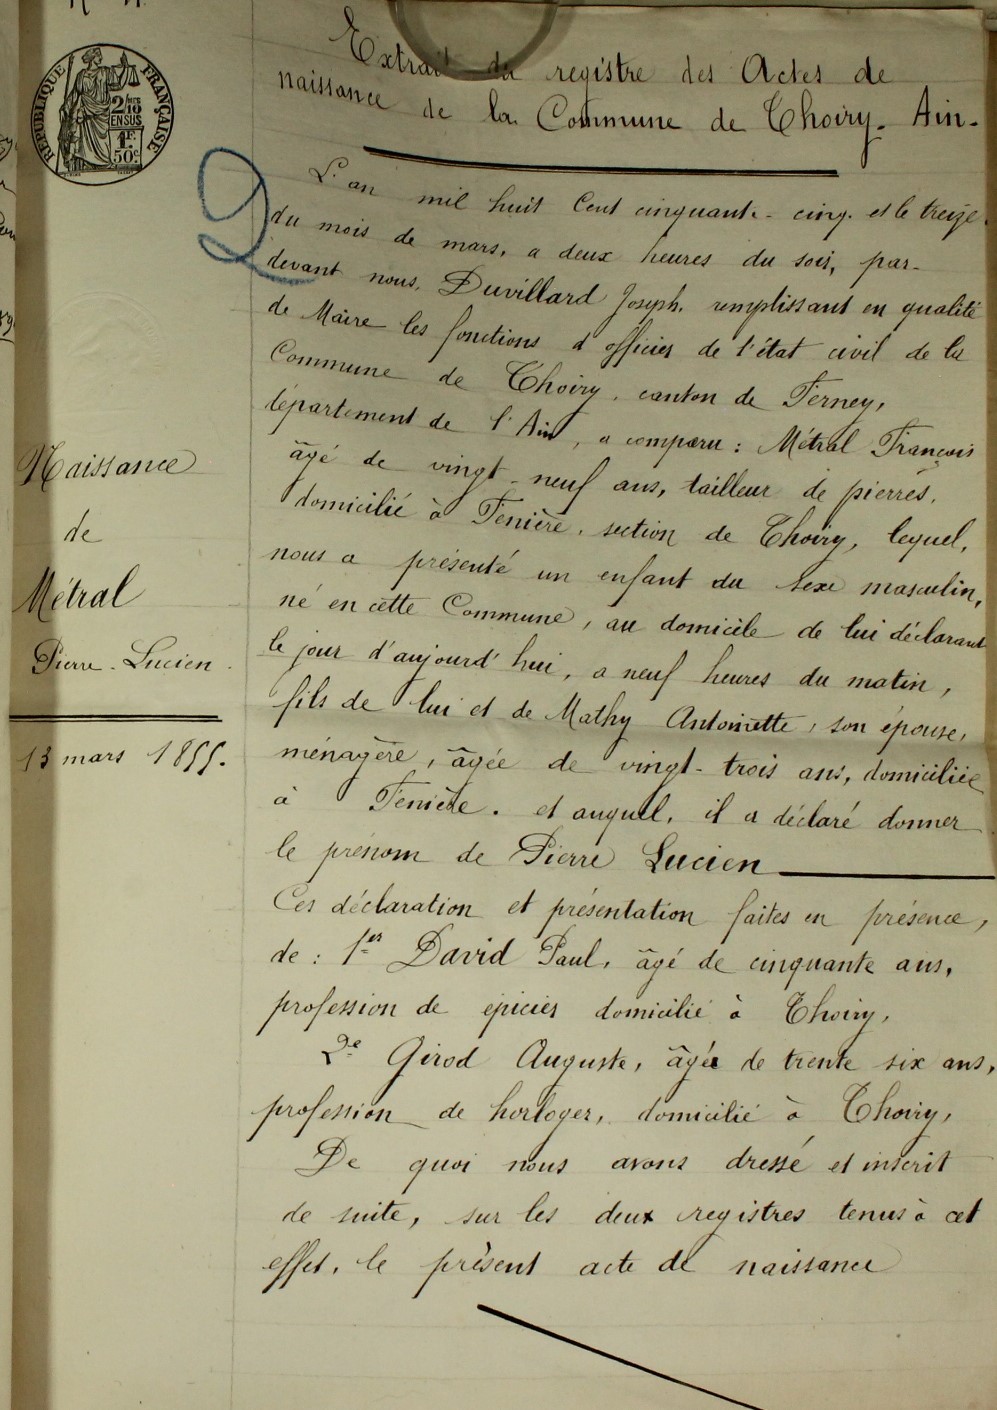 RÉPUBLIQUE FRANÇAISE
2/10
EN SUS
1F.
50c
Extrait du registre des Actes de
naissance de la Commune de Thoiry. Ain.
L'an mil huit Cent cinquante-cinq. et le treize
du mois de mars, a deux heures du soir, par-
devant nous, Duvillard Joseph, remplissant en qualité
de Maire les fonctions d'officier de l'état civil de la
Commune de Thoiry, canton de Ferney,
département de l'Ain, a comparu : Métral François
âgé de vingt-neuf ans, tailleur de pierres,
domicilié à Fenière, section de Thoiry, lequel,
nous a présenté un enfant du sexe masculin,
né en cette Commune, au domicile de lui déclarant
le jour d'aujourd'hui, a neuf heures du matin,
fils de lui et de Mathy Antoinette, son épouse,
ménagère, âgée de vingt-trois ans, domiciliée
à Fenière. et auquel, il a déclaré donner
le prénom de Pierre Lucien
Ces déclaration et présentation faites en présence,
de : 1er David Paul, âgé de cinquante ans,
profession de épicier domicilié à Thoiry,
2e Girod Auguste, âgé de trente six ans,
profession de horloger, domicilié à Thoiry,
De quoi nous avons dressé et inscrit
de suite, sur les deux registres tenus à cet
effet, le présent acte de naissance
Naissance
de
Métral
Pierre-Lucien.
13 mars 1855.